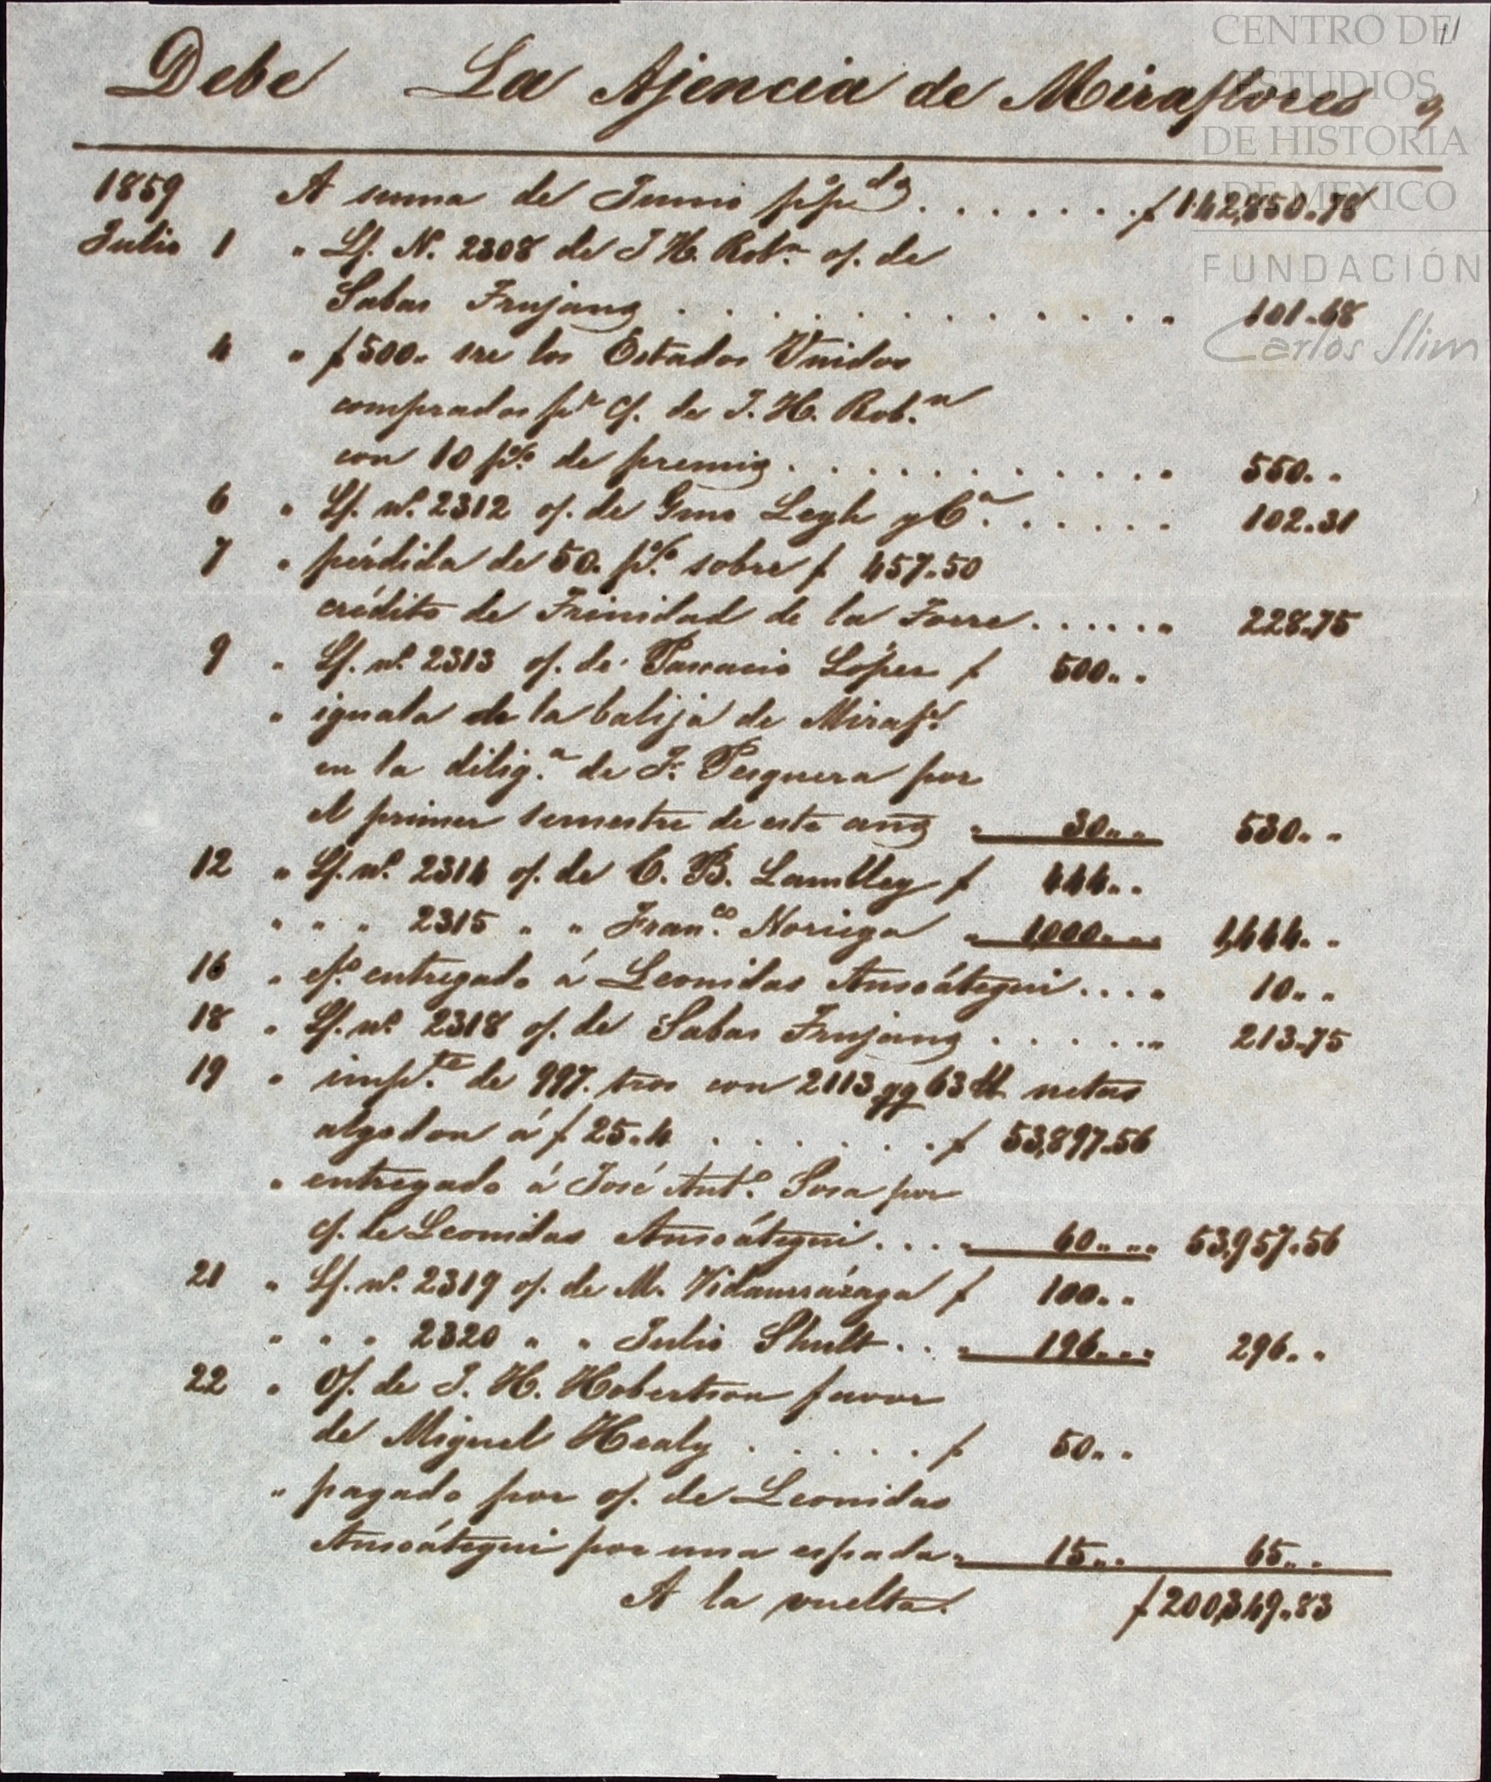 11
CENTRO DE
ESTUDIOS
DE HISTORIA
DE MEXICO
FUNDACIÓN
Carlos Slim
Debe La Ajencia de Miraflores y
1859 A suma de Junio pºpdo . . . . . . . $ 142,850.78
Julio 1 " Lf. N. 2308 de J H. Robn of. de
Sabas Trujano . . . . . . . . . . . . . " 101.68
4 " $ 500. sre los Estados Unidos
comprados pr Cf. de J. H. Rob.n
con 10 p% de premio . . . . . . . . . . . " 550. "
6 " Lf. nº. 2312 of. de Gmo Legh y Cª. . . . . . " 102.31
7 " pérdida de 50. p% sobre $ 457.50
crédito de Trinidad de la Torre . . . . . " 228.75
9 " Lf. nº. 2313 of. de Pascacio López $ 500. "
" iguala de la balija de Mirafs.
en la dilig.a de F. Pesquera por
el primer semestre de este año " 30. " 530. "
12 " Lf. nº. 2314 of. de C. B. Lambley $ 444. "
" " " 2315 " " Fran.co Noriega " 1,000. " 1,444. "
16 " efº. entregado á Leonidas Ansoátegui . . . . " 10. "
18 " Lf. nº. 2318 of. de Sabas Trujano . . . . . . " 213.75
19 " imp.te de 997. tros con 2113 qq 63 lb netas
algodon á $ 25.4 . . . . . . . $ 53,897.56
" entregado á José Antº. Sosa por
cf. de Leonidas Ansoátegui . . . " 60. " 53,957.56
21 " Lf. nº. 2319 of. de M. Vidaurrázaga $ 100. "
" " " 2320 " " Julio Shult . . " 196. " 296. "
22 " Of. de J. H. Hobertson favor
de Miguel Healy . . . . . . $ 50. "
" pagado por of. de Leonidas
Ansoátegui por una espada " 15. " 65. "
A la vuelta. $ 200,349.83